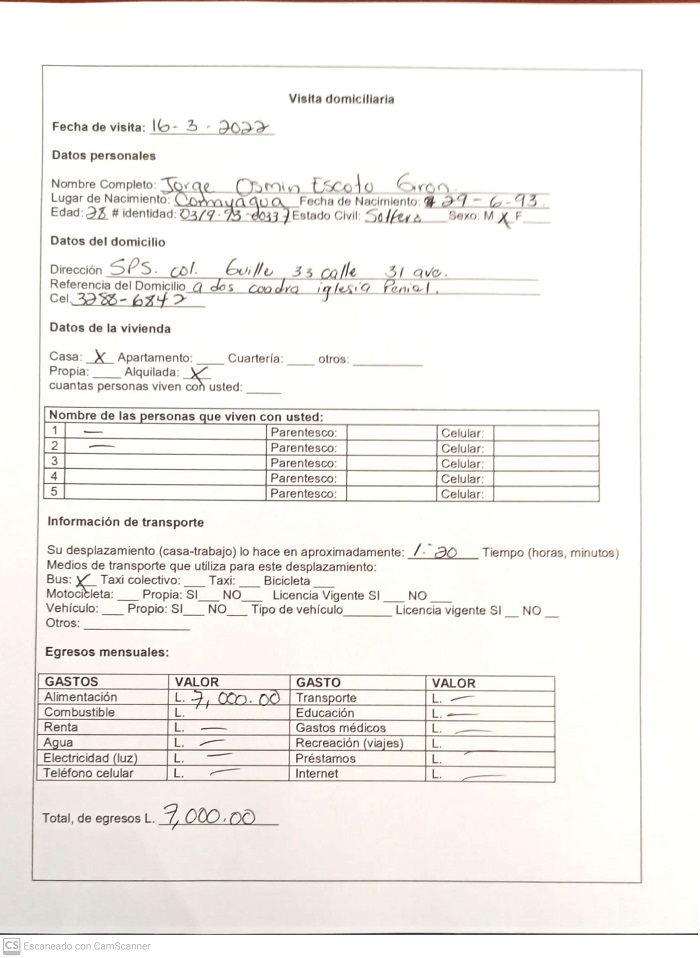 Visita domiciliaria
Fecha de visita: 16-3-2022
Datos personales
Nombre Completo: Jorge Osmin Escoto Giron
Lugar de Nacimiento: Comayagua Fecha de Nacimiento: 29-6-93
Edad: 28 # identidad: Estado Civil: Soltero Sexo: M X F
Datos del domicilio
Dirección SPS. col. 33 calle 31 ave.
Referencia del Domicilio a dos coadra iglesia Penial.
Cel. 3288-6842
Datos de la vivienda
Casa: X Apartamento: ____ Cuartería: ____ otros: ____
Propia: ____ Alquilada: X
cuantas personas viven con usted: ____
Nombre de las personas que viven con usted:
1 — Parentesco: Celular:
2 — Parentesco: Celular:
3 Parentesco: Celular:
4 Parentesco: Celular:
5 Parentesco: Celular:
Información de transporte
Su desplazamiento (casa-trabajo) lo hace en aproximadamente: 1:20 Tiempo (horas, minutos)
Medios de transporte que utiliza para este desplazamiento:
Bus: X Taxi colectivo: ___ Taxi: ___ Bicicleta ___
Motocicleta: ___ Propia: SI ___ NO ___ Licencia Vigente SI ___ NO ___
Vehículo: ___ Propio: SI ___ NO ___ Tipo de vehículo ___ Licencia vigente SI __ NO __
Otros: ____
Egresos mensuales:
GASTOS VALOR GASTO VALOR
Alimentación L. 7,000.00 Transporte L. —
Combustible L. Educación L. —
Renta L. — Gastos médicos L. —
Agua L. — Recreación (viajes) L.
Electricidad (luz) L. — Préstamos L.
Teléfono celular L. — Internet L. —
Total, de egresos L. 7,000.00
CS Escaneado con CamScanner